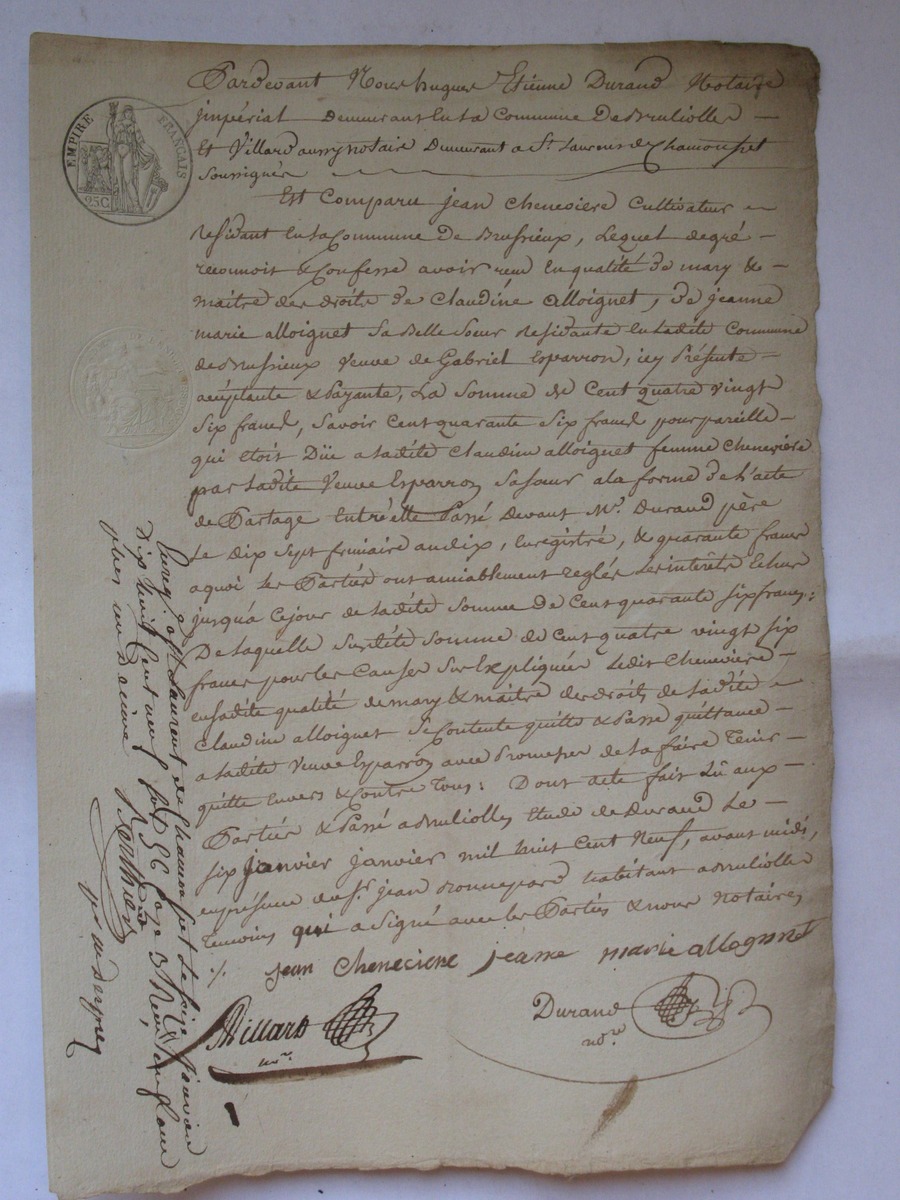 EMPIRE FRANÇAIS
25C
Pardevant Nous hugues Etienne Durand Notaire
jmpérial Demeurant en la Commune De Brulliolles
Et Villard aussy notaire Demeurant a St. Laurens de Chamousset
Soussignés
Est Comparu jean Cheneviere Cultivateur
Residant en la Commune De Brussieux, Lequel de gré
reconnoit & Confesse avoir reçu En qualité de mary &
maitre des droits de Claudine alloignet, de jeanne
marie alloignet Sa Belle Soeur Residante en ladite Commune
de Brussieux veuve de Gabriel Esparron, icy Présente
acceptante & Payante, La Somme de Cent quatre vingt
Six francs, Savoir Cent quarante Six francs pour pareille
qui etoit Düe a ladite Claudine alloignet femme Cheneviere
par ladite Veuve Esparron Sa soeur a la forme de L'acte
de Partage Entre elle Passé Devant Me. Durand père
Le Dix Sept frimaire an dix, Enregistré, & quarante francs
a quoi les Parties ont amiablement reglés Les intérêts Echus
jusqu'a Ce jour de ladite Somme De Cent quarante Six francs;
De laquelle Susdite Somme de Cent quatre vingt Six
francs pour les Causes Sus Expliquées Ledit Cheneviere
en Sadite qualité de mary & maitre des droits de ladite
Claudine alloignet Se Contente quitte & Passe quittance
a ladite Veuve Esparron avec Promesse de la faire Tenir
quitte Envers & Contre Tous: Dont acte fait Lû aux
Parties & Passé a Brulliolles Etude de Durand Le
Six janvier janvier mil huit Cent Neuf, avant midi,
en présence du Sr. jean habitant a Brulliolles
Temoins qui a Signé avec les Parties & nous Notaires
./. jean Cheneviere jeanne marie allognet
Villard
nore.
Durand
nore
Enreg. a St. Laurent de Chamousset le Seize Janvier
Dix huit Cent neuf fol. 56 case 3 Reçu un franc
plus un Decime